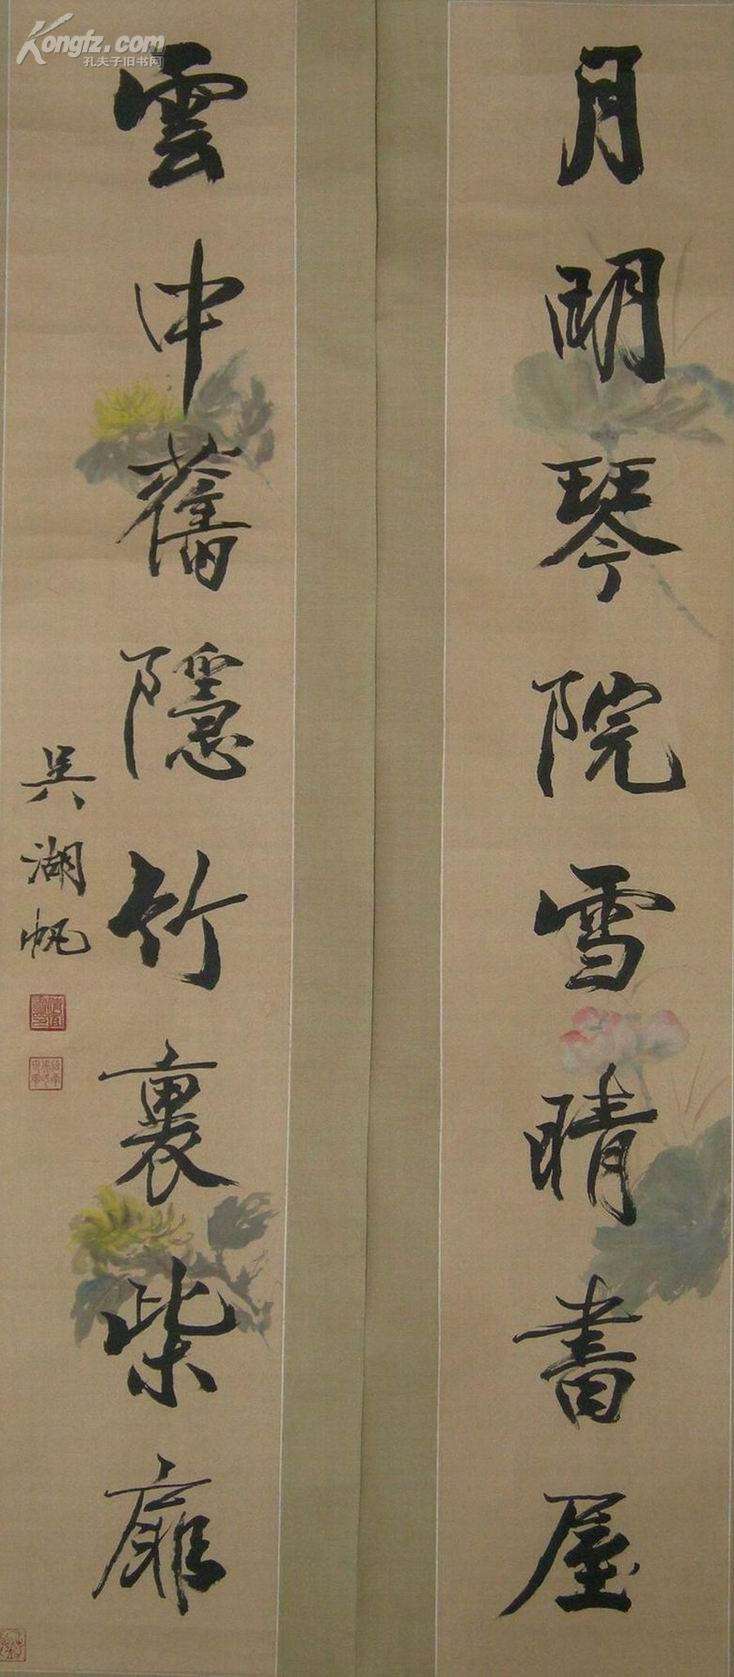 Kongfz.com
孔夫子旧书网
月明琴院雪晴書屋
雲中舊隱竹裏柴扉
吳湖帆